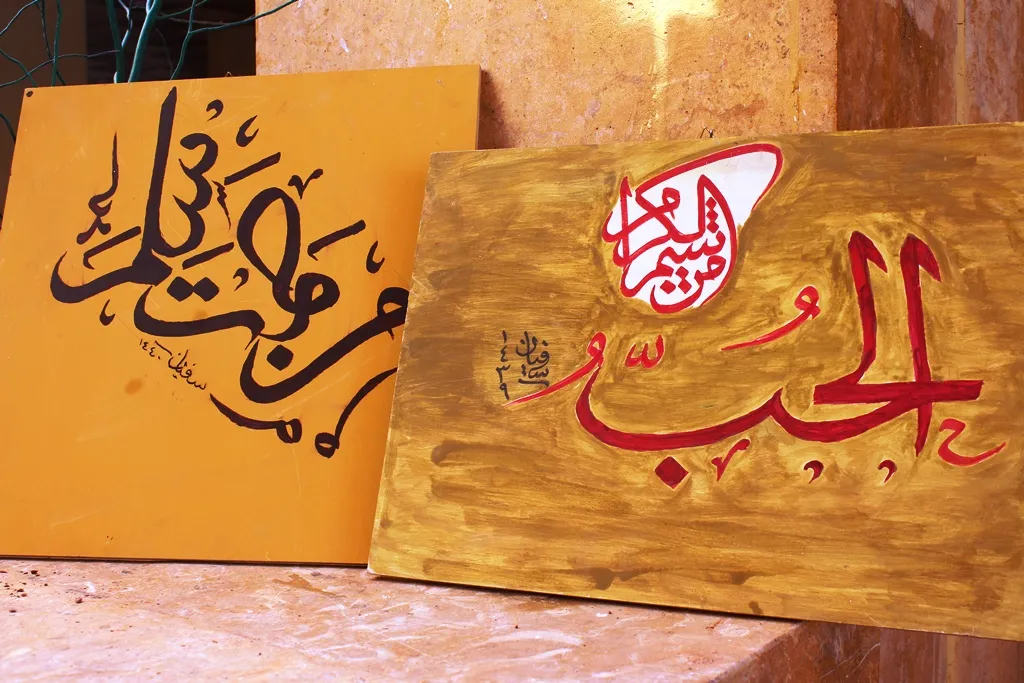 من صمت سلم
سفيان ١٤٤٠
الحُبُّ
من شيم الكرام
سفيان ١٤٣٩